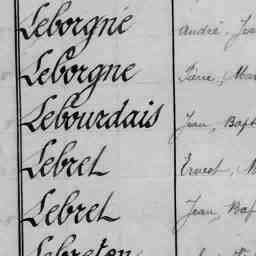 Leborgne André, Jea
Leborgne Pierre, Mar
Lebourdais Jean, Bapt
Lebret Ernest, M
Lebret Jean, Bap
Lebreton